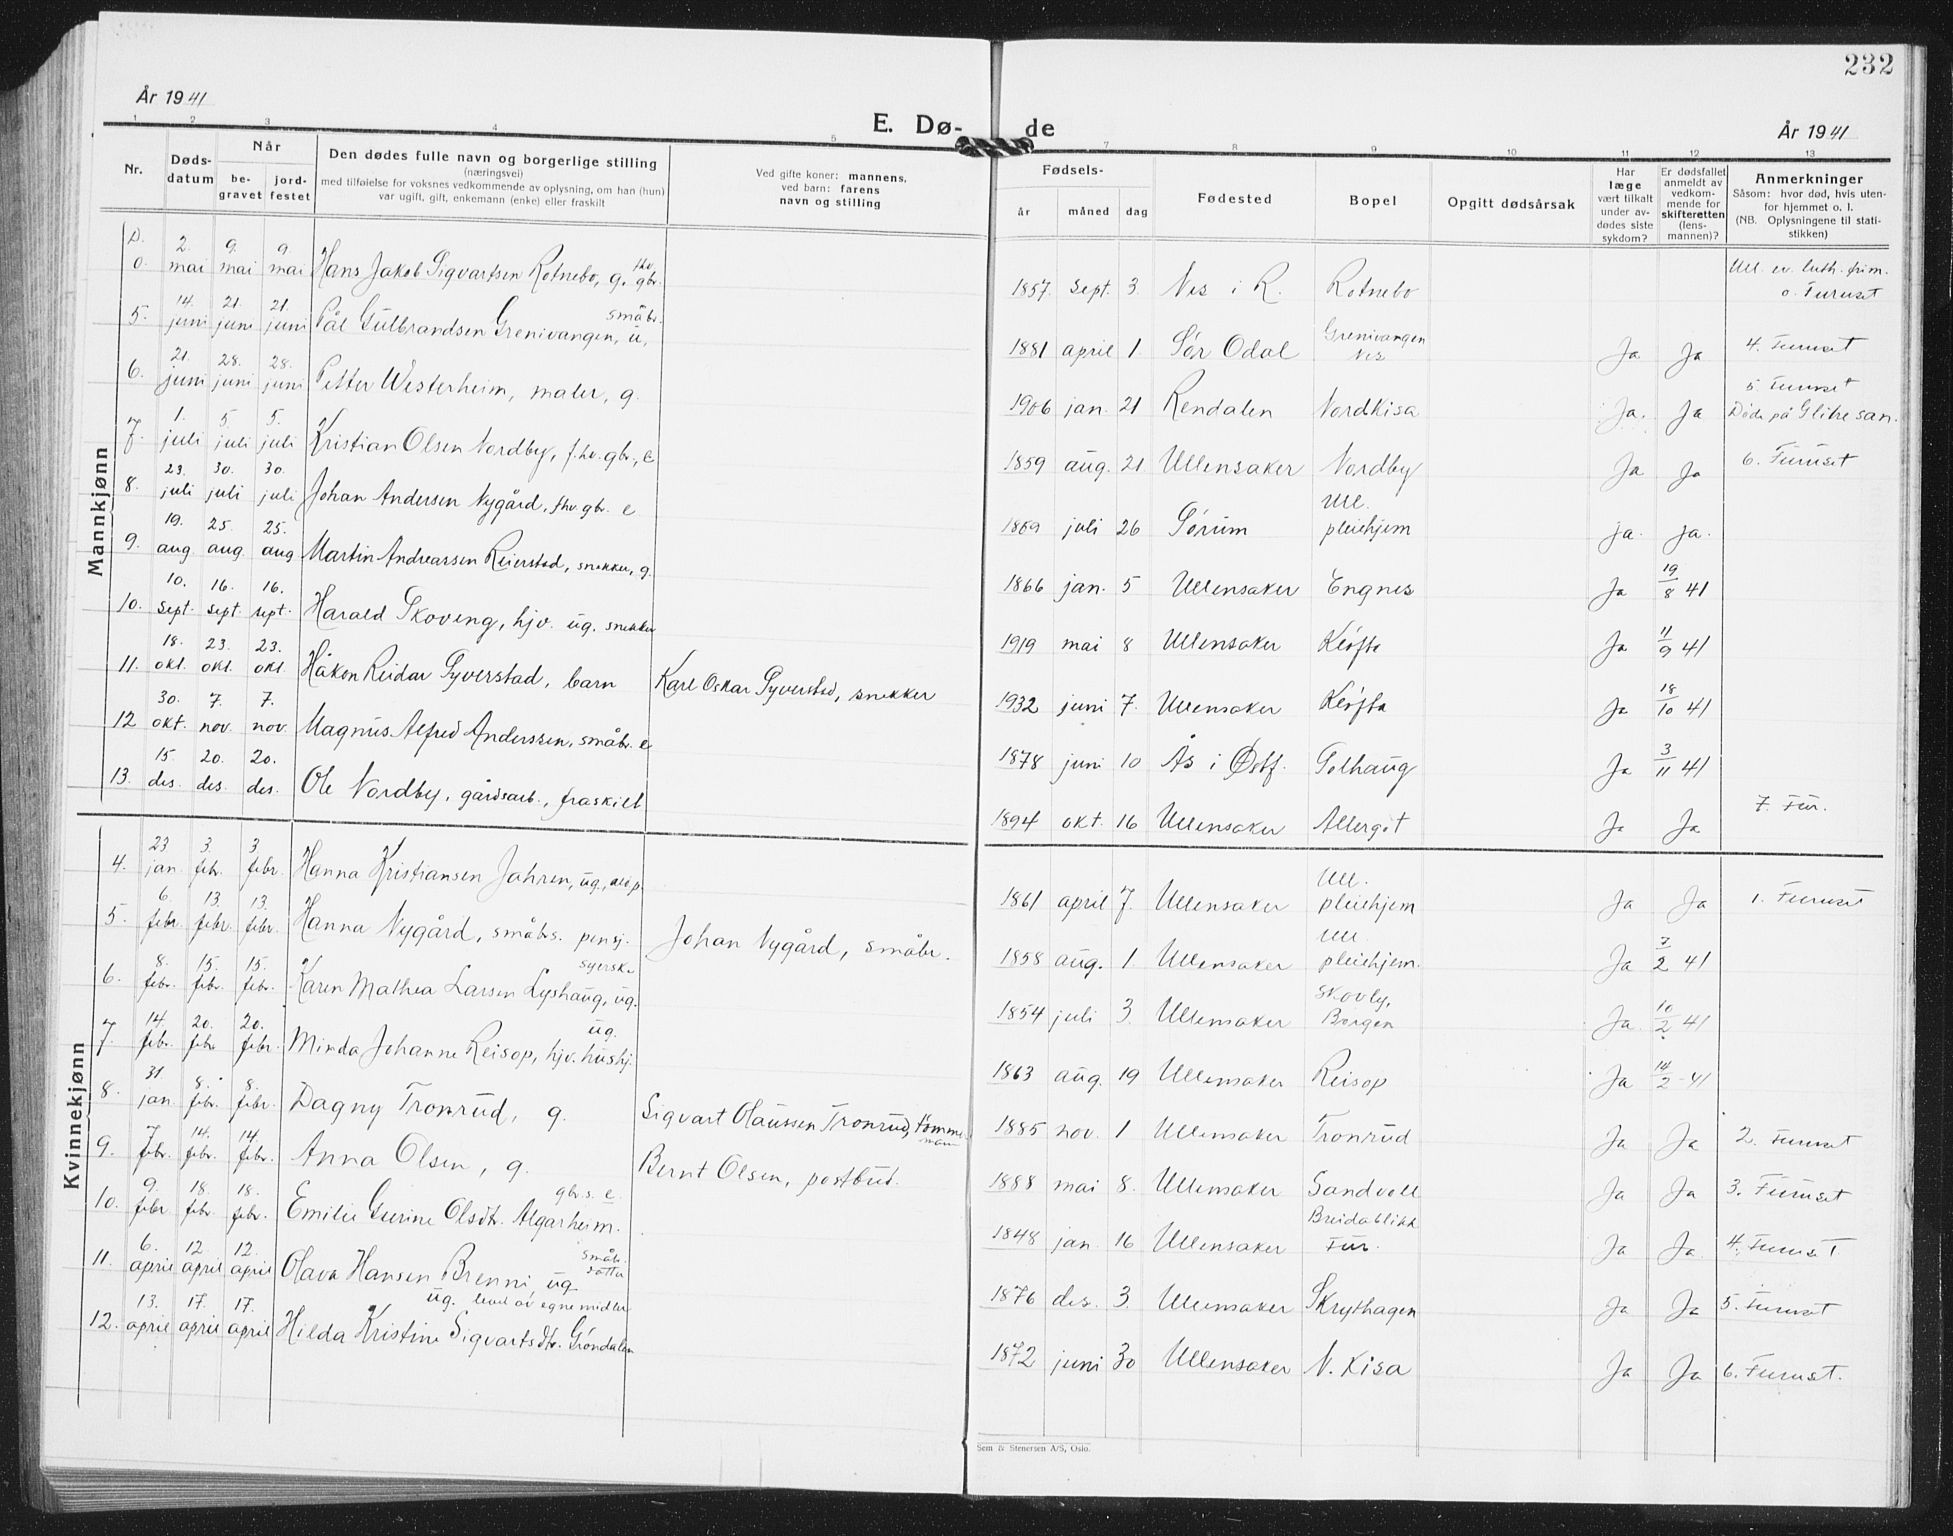 232
År 1941
E. Dø- de
År 1941
1 2 3 4 5 7 8 9 10 11 12 13
Nr. Døds-datum Når be-gravet jord-festet Den dødes fulle navn og borgerlige stilling (næringsvei) med tilføielse for voksnes vedkommende av oplysning, om han (hun) var ugift, gift, enkemann (enke) eller fraskilt Ved gifte koner: mannens, ved barn: farens navn og stilling Fødsels- år måned dag Fødested Bopel Opgitt dødsårsak Har læge vært tilkalt under av-dødes siste sykdom? Er dødsfallet anmeldt av vedkom-mende for skifteretten (lens-mannen)? Anmerkninger Såsom: hvor død, hvis uten-for hjemmet o. l. (NB. Oplysningene til stati-stikken)
Mannkjønn
D. 0. 2. mai 9. mai 9. mai Hans Jakob Sigvartsen Rotnebo, g. fhv. gbr. 1857. sept. 3. Nes i R. Rotnebo Ull. ev. luth. frim. o. Furuset
5. 14. juni 21. juni 21. juni Pål Gulbrandsen Grenivangen, u, småbr. 1881 april 1. Sør Odal Grenivangen Nes Ja Ja 4. Furuset
6. 21. juni 28. juni 28. juni Petter Westerheim, maler, g. 1906 jan. 21 Rendalen Nordkisa Ja. Ja 5. Furuset Døde på Glitre san.
7. 1. juli 5. juli 5. juli Kristian Olsen Nordby, f.hv. gbr., e 1859 aug. 21 Ullensaker Nordby Ja Ja 6. Furuset
8. 23. juli 30. juli 30. juli Johan Andersen Nygård, fhv. gbr. e 1869 juli 26 Sørum Ull. pleiehjem Ja. Ja.
9. 19. aug. 25. aug. 25. aug Martin Andreassen Reierstad, snekker, g. 1866 jan. 5 Ullensaker Engnes Ja 19/8 41
10. 10. sept. 16. sept. 16. sept. Harald Skoveng, hjv. ug. snekker 1919 mai 8 Ullensaker Kløfta Ja 11/9 41
11. 18. okt. 23. okt. 23. okt. Håkon Reidar Gyverstad, barn Karl Oskar Gyverstad, snekker 1932 juni 7. Ullensaker Kløfta Ja 18/10 41
12 30. okt. 7. nov. 7. nov. Magnus Alfred Anderssen, småbr. e 1878 juni 10 Ås i Østf. Solhaug Ja 3/11 41
13. 15. des. 20. des. 20. des. Ole Nordby, gårdsarb., fraskilt 1894 okt. 16 Ullensaker Allergot Ja Ja 7. Fur.
Kvinnekjønn
4. 23 jan. 3. febr. 3 febr. Hanna Kristiansen Jahren, ug., ald.p. 1861 april 7. Ullensaker Ull. pleiehjem Ja Ja 1. Furuset
5. 6. febr. 13. febr. 13. febr. Hanna Nygård, småbrs. pensj. Johan Nygård, småbr. 1858 aug. 1 Ullensaker Ull. pleiehjem. Ja 7/2 41
6. 8. febr. 15. febr. 15. febr. Karen Mathea Larsen Lyshaug, ug. syerske 1854 juli 3. Ullensaker Skovly, Borgen Ja. 10/2 41
7. 14. febr. 20. febr. 20. febr. Minda Johanne Reisop, hjv. hushj. ug. 1863 aug. 19 Ullensaker Reisop Ja 14/2 -41
8. 31 jan. 8. febr. 8. febr. Dagny Tronrud, g. Sigvart Olaussen Tronrud, tømmermann 1885 nov. 1 Ullensaker Tronrud Ja Ja 2. Furuset
9. 7. febr. 14. febr. 14. febr. Anna Olsen, g. Bernt Olsen, postbud. 1888 mai 8. Ullensaker Sandvoll Ja Ja 3. Furuset
10. 9. febr 18. febr. 18. febr. Emilie Gurine Olsdtr. Algarheim. gbr.s. e. 1848 jan. 16 Ullensaker Breidablikk Fur. Ja Ja 4. Furuset
11. 6. april 12. april 12. april Olava Hansen Brenni ug småbr. datter 1876 des. 3. Ullensaker Skrythagen Ja Ja 5. Furuset
12. 13. april 17. april 17. april Hilda Kristine Sigvartsdtr. Grøndalen ug. levet av egne midler 1872 juni 30 Ullensaker N. Kisa Ja Ja 6. Furuset.
Sem & Stenersen A/S, Oslo.